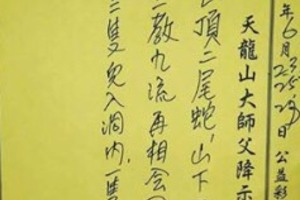 年6月23.25.29日 公益彩
天龍山大師父降示
頂二尾蛇,山下
二教九流再相会
三隻兒入洞内,一隻